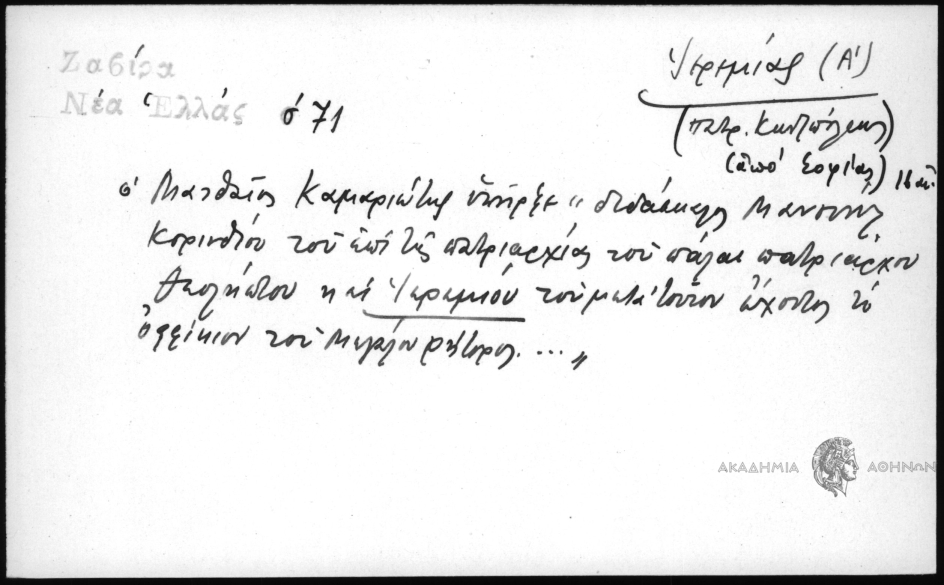 Ζαβίρα
Νέα Ἑλλάς σ 71
Ἱερεμίας (Α')
(πατρ. Κων/πόλεως)
(ἀπό Σοφίας) 16 αἰ.
ὁ Ματθαῖος Καμαριώτης ὑπῆρξε „ διδάσκαλος Μανουὴλ
Κορινθίου τοῦ ἐπί τῆς πατριαρχίας τοῦ πάλαι πατριάρχου
Θεολήπτου καί Ἱερεμίου τοῦ μετά τοῦτον ἔχοντος τό
ὀφφίκιον τοῦ Μεγάλου Ρήτορος. ... „
ΑΚΑΔΗΜΙΑ ΑΘΗΝΩΝ